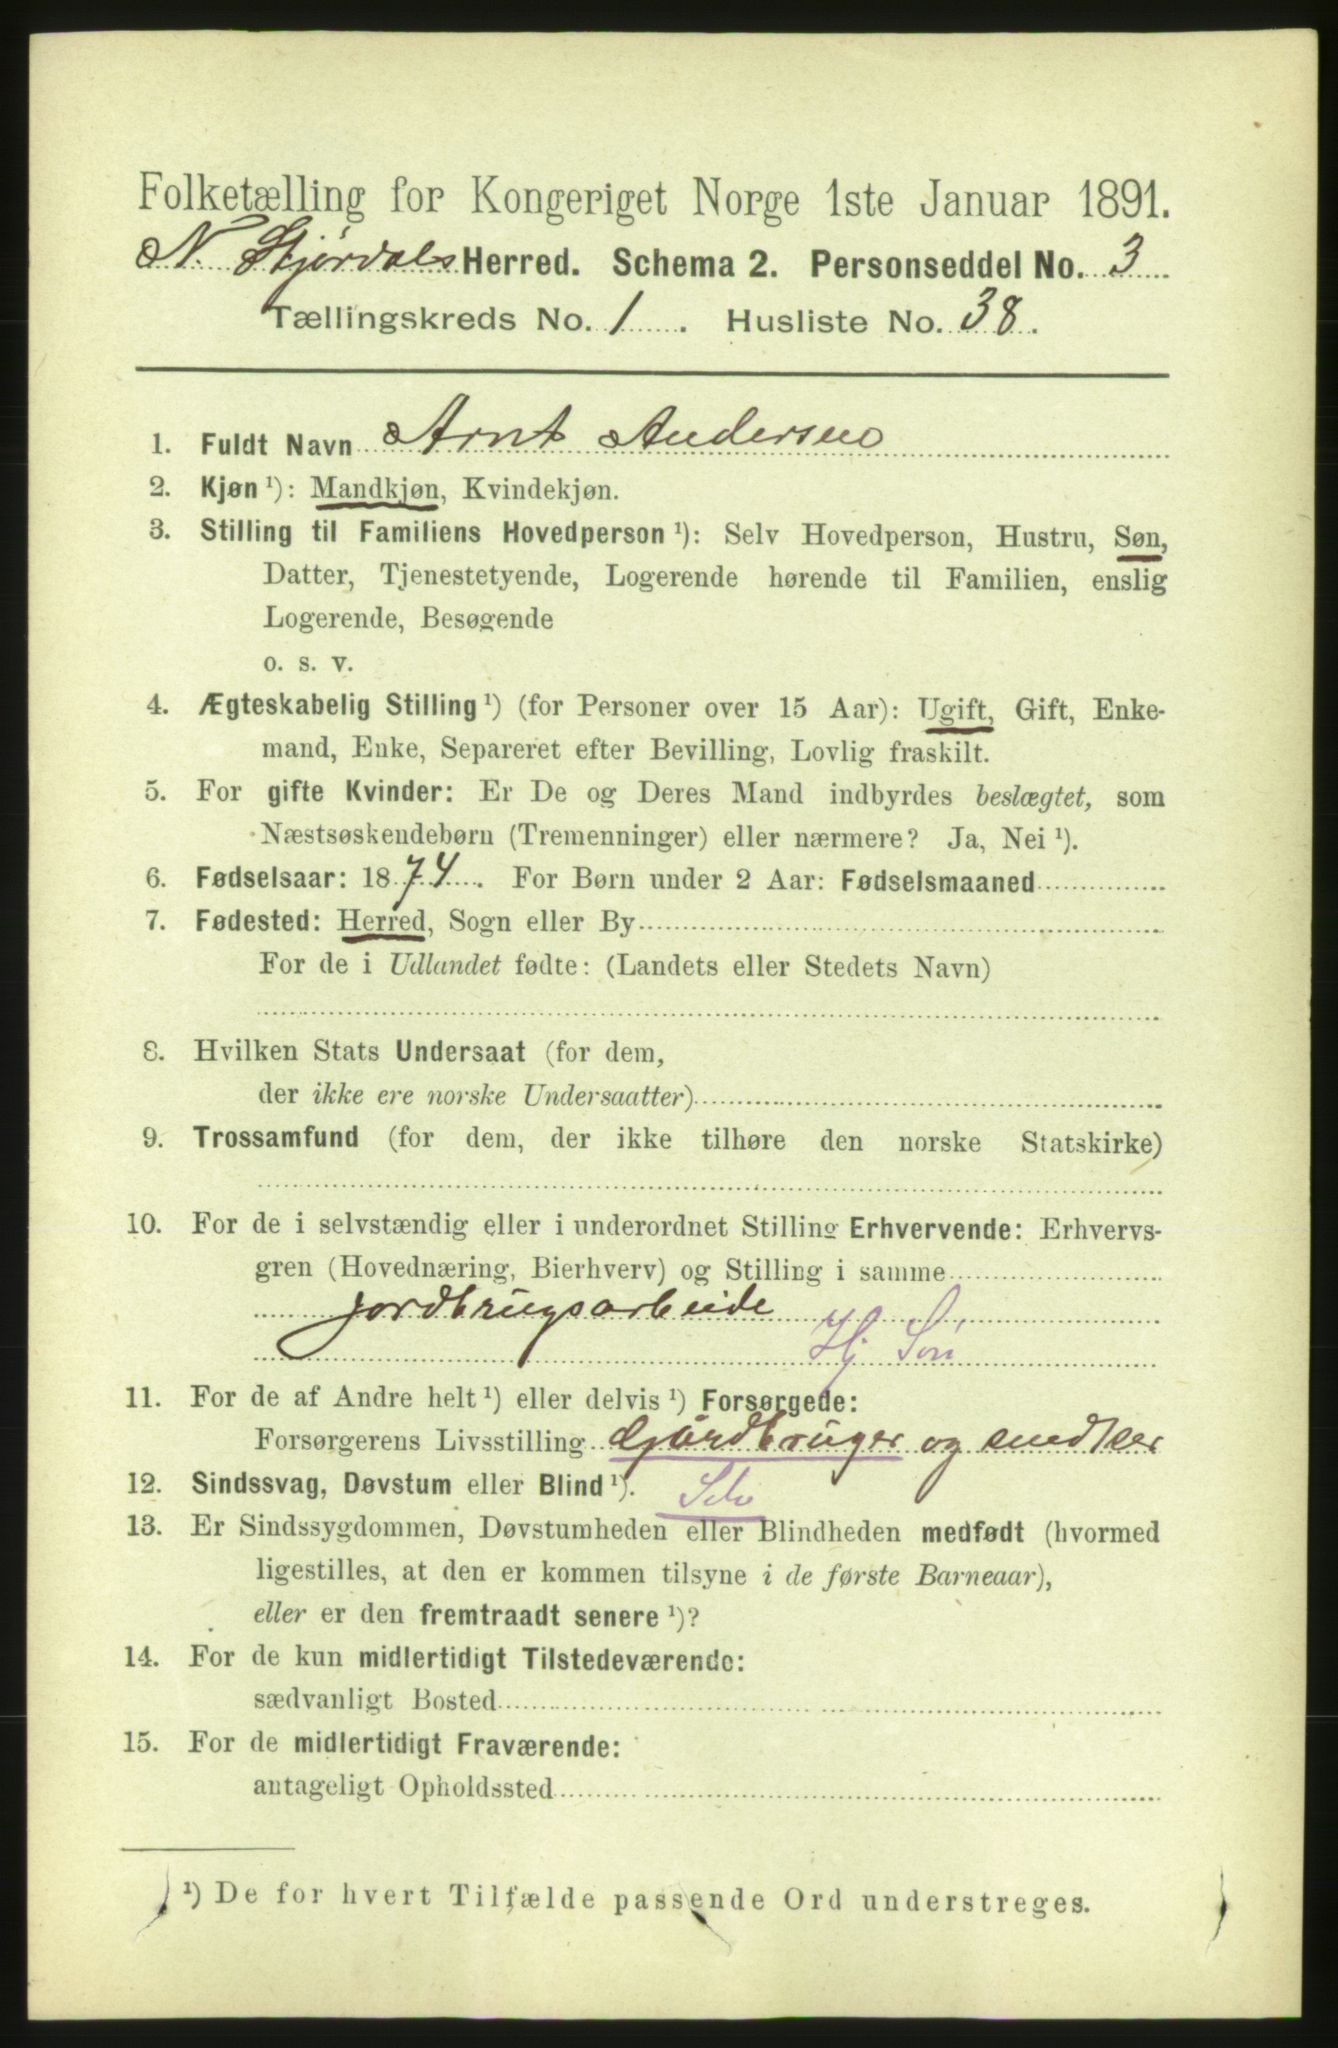 Folketælling for Kongeriget Norge 1ste Januar 1891.
N. Stjørdals Herred. Schema 2. Personseddel No. 3
Tællingskreds No. 1. Husliste No. 38.
1. Fuldt Navn Arnt Andersen
2. Kjøn ¹): Mandkjøn, Kvindekjøn.
3. Stilling til Familiens Hovedperson ¹): Selv Hovedperson, Hustru, Søn,
Datter, Tjenestetyende, Logerende hørende til Familien, enslig
Logerende, Besøgende
o. s. v.
4. Ægteskabelig Stilling ¹) (for Personer over 15 Aar): Ugift, Gift, Enke-
mand, Enke, Separeret efter Bevilling, Lovlig fraskilt.
5. For gifte Kvinder: Er De og Deres Mand indbyrdes beslægtet, som
Næstsøskendebørn (Tremenninger) eller nærmere? Ja, Nei ¹).
6. Fødselsaar: 1874. For Børn under 2 Aar: Fødselsmaaned
7. Fødested: Herred, Sogn eller By
For de i Udlandet fødte: (Landets eller Stedets Navn)
8. Hvilken Stats Undersaat (for dem,
der ikke ere norske Undersaatter)
9. Trossamfund (for dem, der ikke tilhøre den norske Statskirke)
10. For de i selvstændig eller i underordnet Stilling Erhvervende: Erhvervs-
gren (Hovednæring, Bierhverv) og Stilling i samme
jordbrugsarbeide
Hj Søn
11. For de af Andre helt ¹) eller delvis ¹) Forsørgede:
Forsørgerens Livsstilling Gjårdbruger og
12. Sindssvag, Døvstum eller Blind ¹). Selv
13. Er Sindssygdommen, Døvstumheden eller Blindheden medfødt (hvormed
ligestilles, at den er kommen tilsyne i de første Barneaar),
eller er den fremtraadt senere ¹)?
14. For de kun midlertidigt Tilstedeværende:
sædvanligt Bosted
15. For de midlertidigt Fraværende:
antageligt Opholdssted
¹) De for hvert Tilfælde passende Ord understreges.